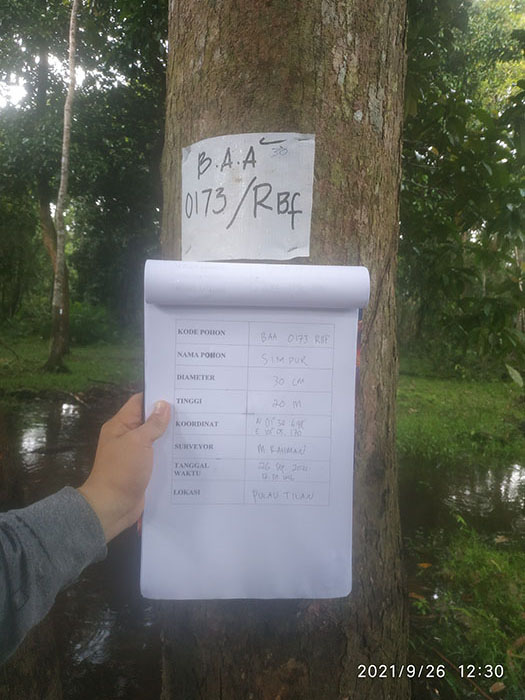 B.A.A
0173/RBf
KODE POHON BAA 0173 RBF
NAMA POHON SIMPUR
DIAMETER 30 CM
TINGGI 20 M
KOORDINAT
SURVEYOR M RAHMANI
TANGGAL
WAKTU
LOKASI PULAU TILAN
2021/9/26 12:30